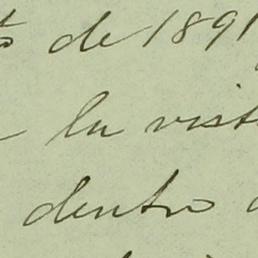 de 1891
la vist
dentro